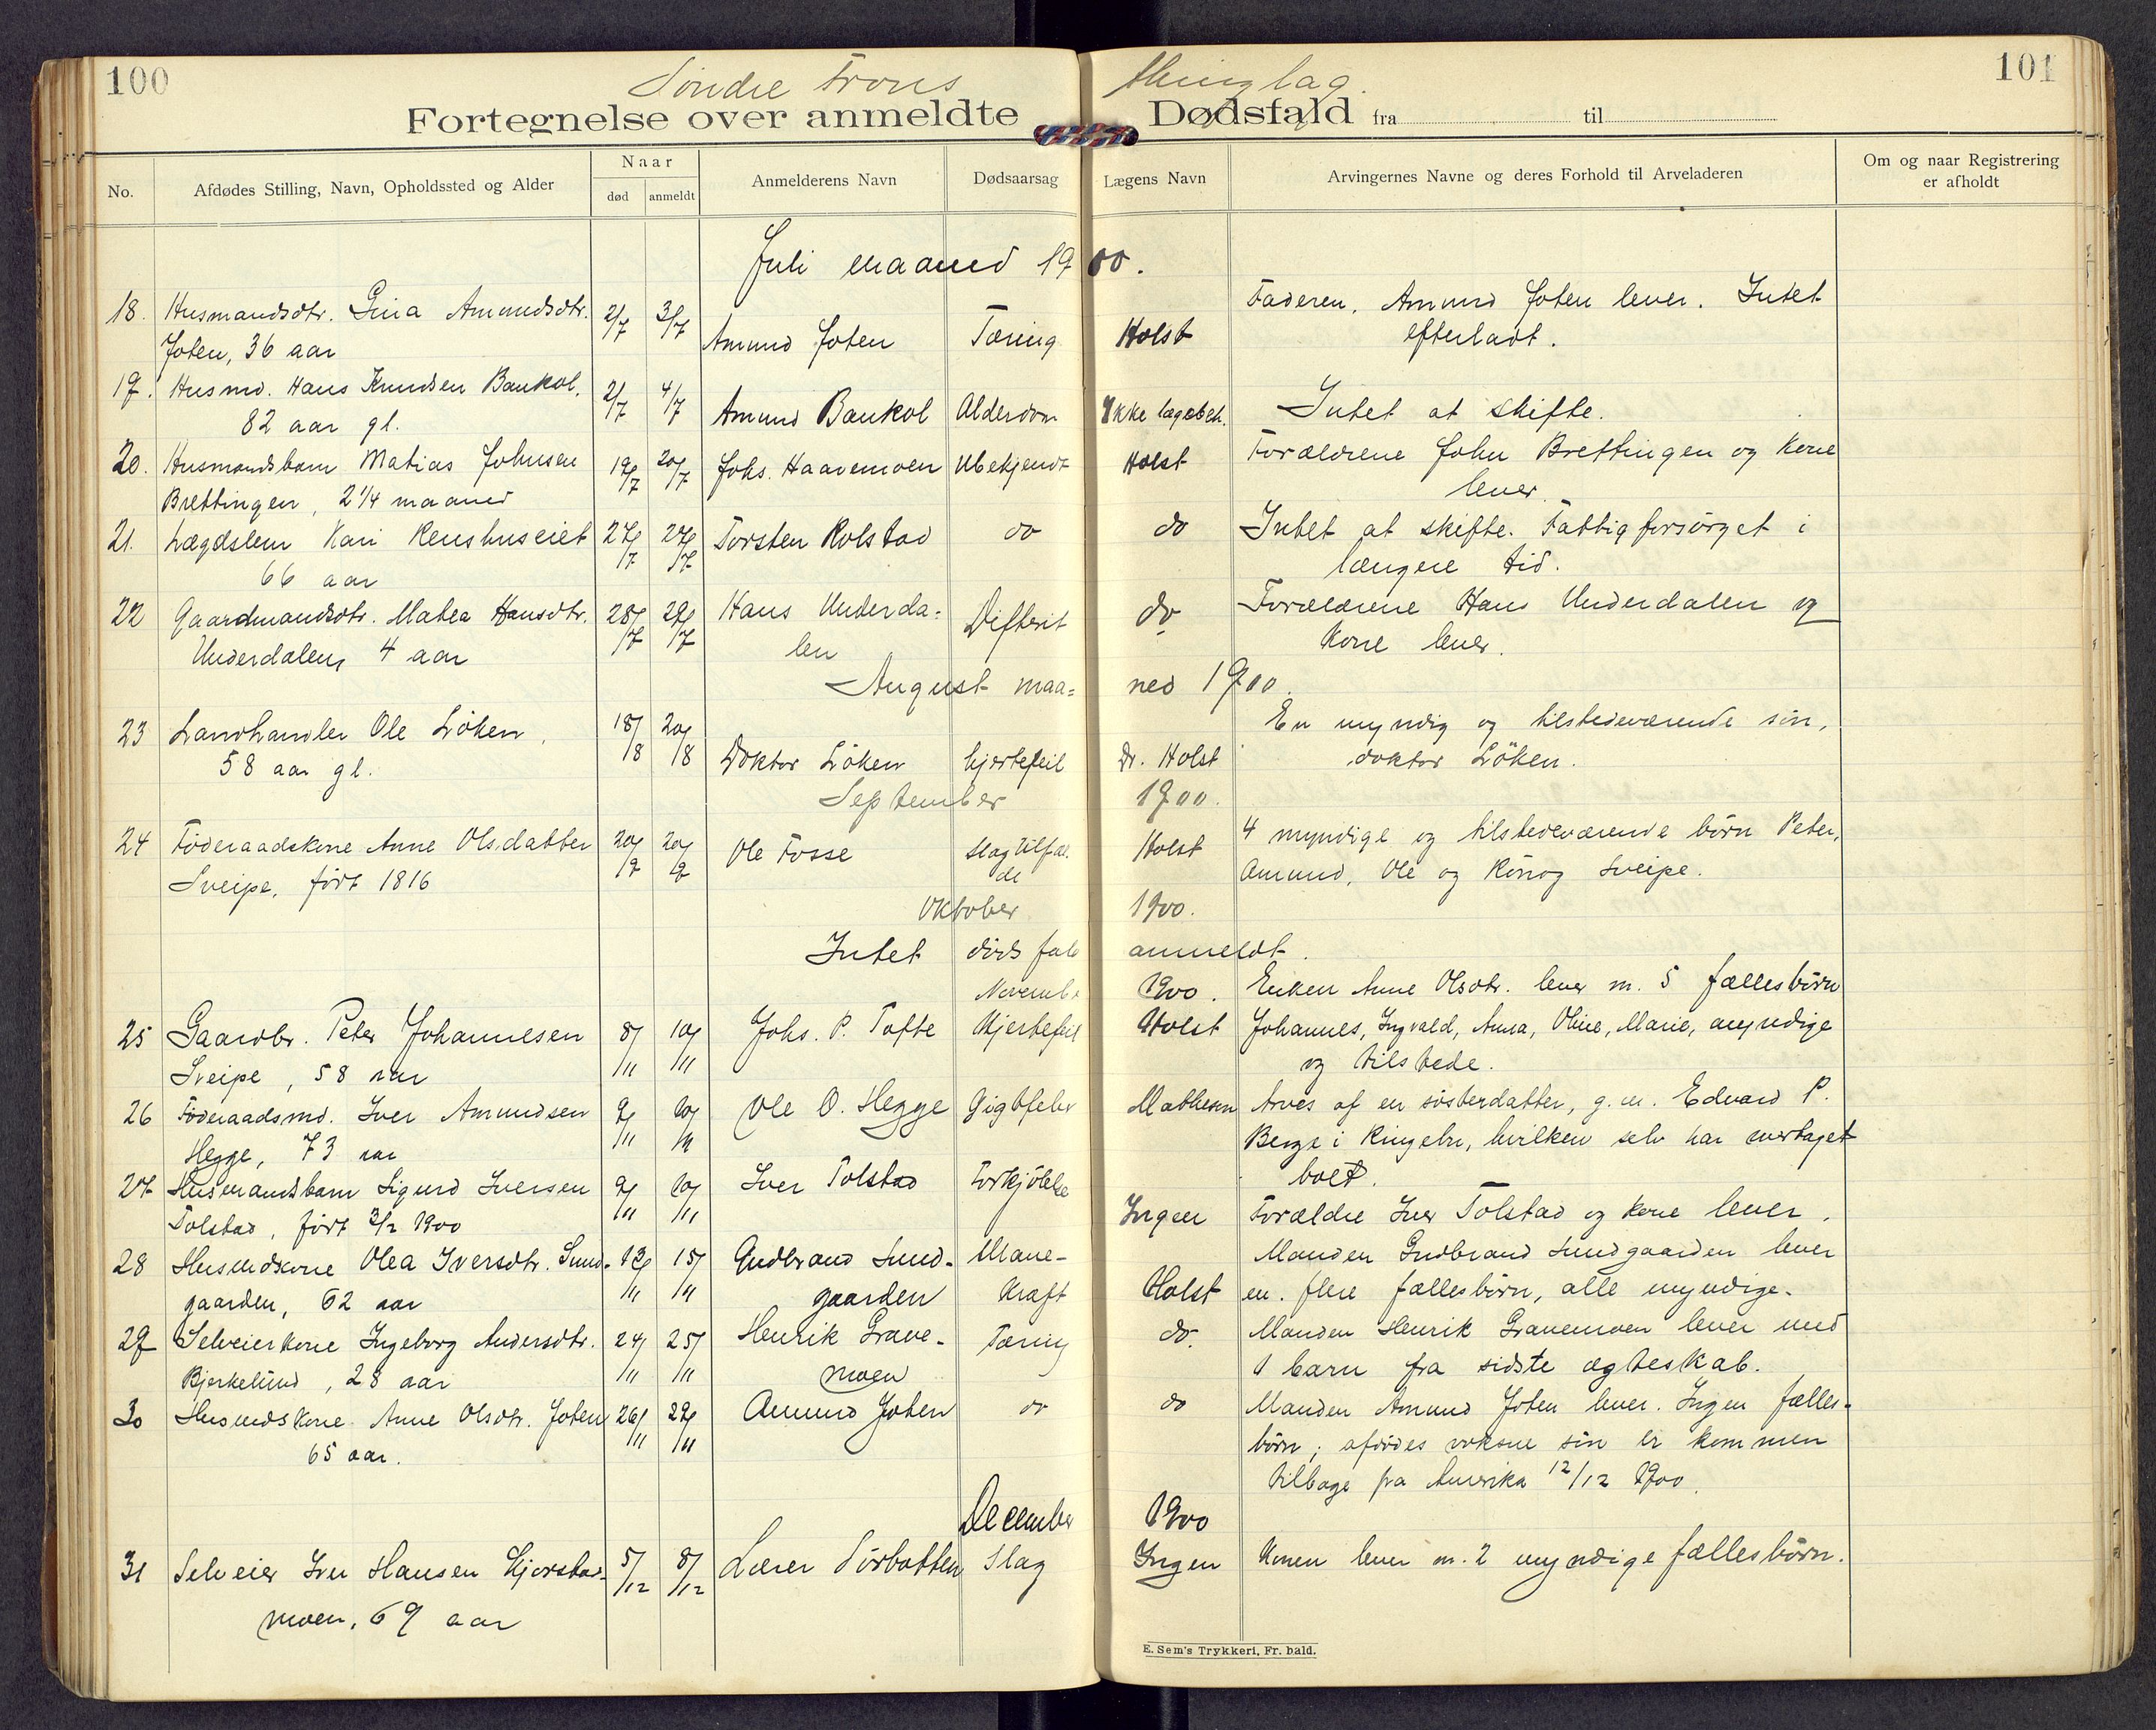 100
101
Søndre Frons
thinglag.
Fortegnelse over anmeldte Dødsfald fra til
No.
Afdødes Stilling, Navn, Opholdssted og Alder
Naar
død
anmeldt
Anmelderens Navn
Dødsaarsag
Lægens Navn
Arvingernes Navne og deres Forhold til Arveladeren
Om og naar Registrering
er afholdt
Juli maaned 1900.
18. Husmandsdtr. Gina Amundsdtr. 2/7 3/7 Amund Joten Tæring Holst Faderen, Amund Joten lever. Intet
Joten, 36 aar efterladt.
19. Husmd. Hans Knudsen Baukol, 2/7 4/7 Amund Baukol Alderdom Ikke lægebeh. Intet at skifte.
82 aar gl.
20. Husmandsbarn Matias Johnsen 19/7 20/7 Johs. Haavemoen Ubekjendt Holst Forældrene John Brettingen og kone
Brettingen, 2 1/4 maaned lever.
21. Lægdslem Kari Renshuseiet 27/7 27/7 Torsten Kolstad do do Intet at skifte. Fattigforsørget i
66 aar længere tid.
22 Gaardmandsdtr. Matea Hansdtr. 28/7 29/7 Hans Underda= Difterit do Forældrene Hans Underdalen og
Underdalen, 4 aar len kone lever.
August maa= ned 1900.
23 Landhandler Ole Løken, 18/8 20/8 Doktor Løken hjertefeil Dr. Holst En myndig og tilstedeværende søn,
58 aar gl. doktor Løken.
September 1900.
24 Føderaadskone Anne Olsdatter 20/9 20/9 Ole Fosse Slagtilfæl Holst 4 myndige og tilstedeværende børn Peter,
Sveipe, født 1816 de Amund, Ole og Rønog Sveipe.
Oktober 1900.
Intet døds fald anmeldt.
November 1900. Enken Anne Olsdtr. lever m. 5 fællesbørn
25 Gaardbr. Peter Johannesen 8/11 10/11 Johs. P. Tofte Hjertefeil Holst Johannes, Ingvald, Anna, Oline, Marie, myndige
Sveipe, 58 aar og tilstede.
26 Føderaadsmd. Iver Amundsen 9/11 10/11 Ole O. Hegge Gigtfeber Mathesen Arves af en søsterdatter, g. m. Edvard P.
Hegge, 73 aar Berge i Ringebu, hvilken selv har overtaget
boet.
27 Husmandsbarn Sigurd Iversen 9/11 10/11 Iver Tolstad Forkjølelse
Tolstad, født 3/2 1900 Ingen Forældre Iver Tolstad og kone lever.
28 Husmdskone Olea Iversdtr. Sund- 13/11 15/11 Gudbrand Sund- Mave- Manden Gudbrand Sundgaarden lever
gaarden, 62 aar gaarden Kræft Holst m. flere fællesbørn, alle myndige.
29 Selveierkone Ingeborg Andersdtr. 24/11 25/11 Henrik Grave- Tæring do. Manden Henrik Gravemoen lever med
Bjerkelund, 28 aar moen 1 barn fra sidste ægteskab.
30 Husmdskone Anne Olsdtr. Joten 26/11 29/11 Amund Joten do do Manden Amund Joten lever. Ingen fælles-
65 aar. børn; afdødes voksne søn er kommen
tilbage fra Amerika 12/12 1900.
December 1900
31 Selveier Iver Hansen Kjorstad- 5/12 8/12 Lærer Sørbotten Slag Ingen Konen lever m. 2 myndige fællesbørn.
moen, 69 aar
E. Sem's Trykkeri, Fr. hald.